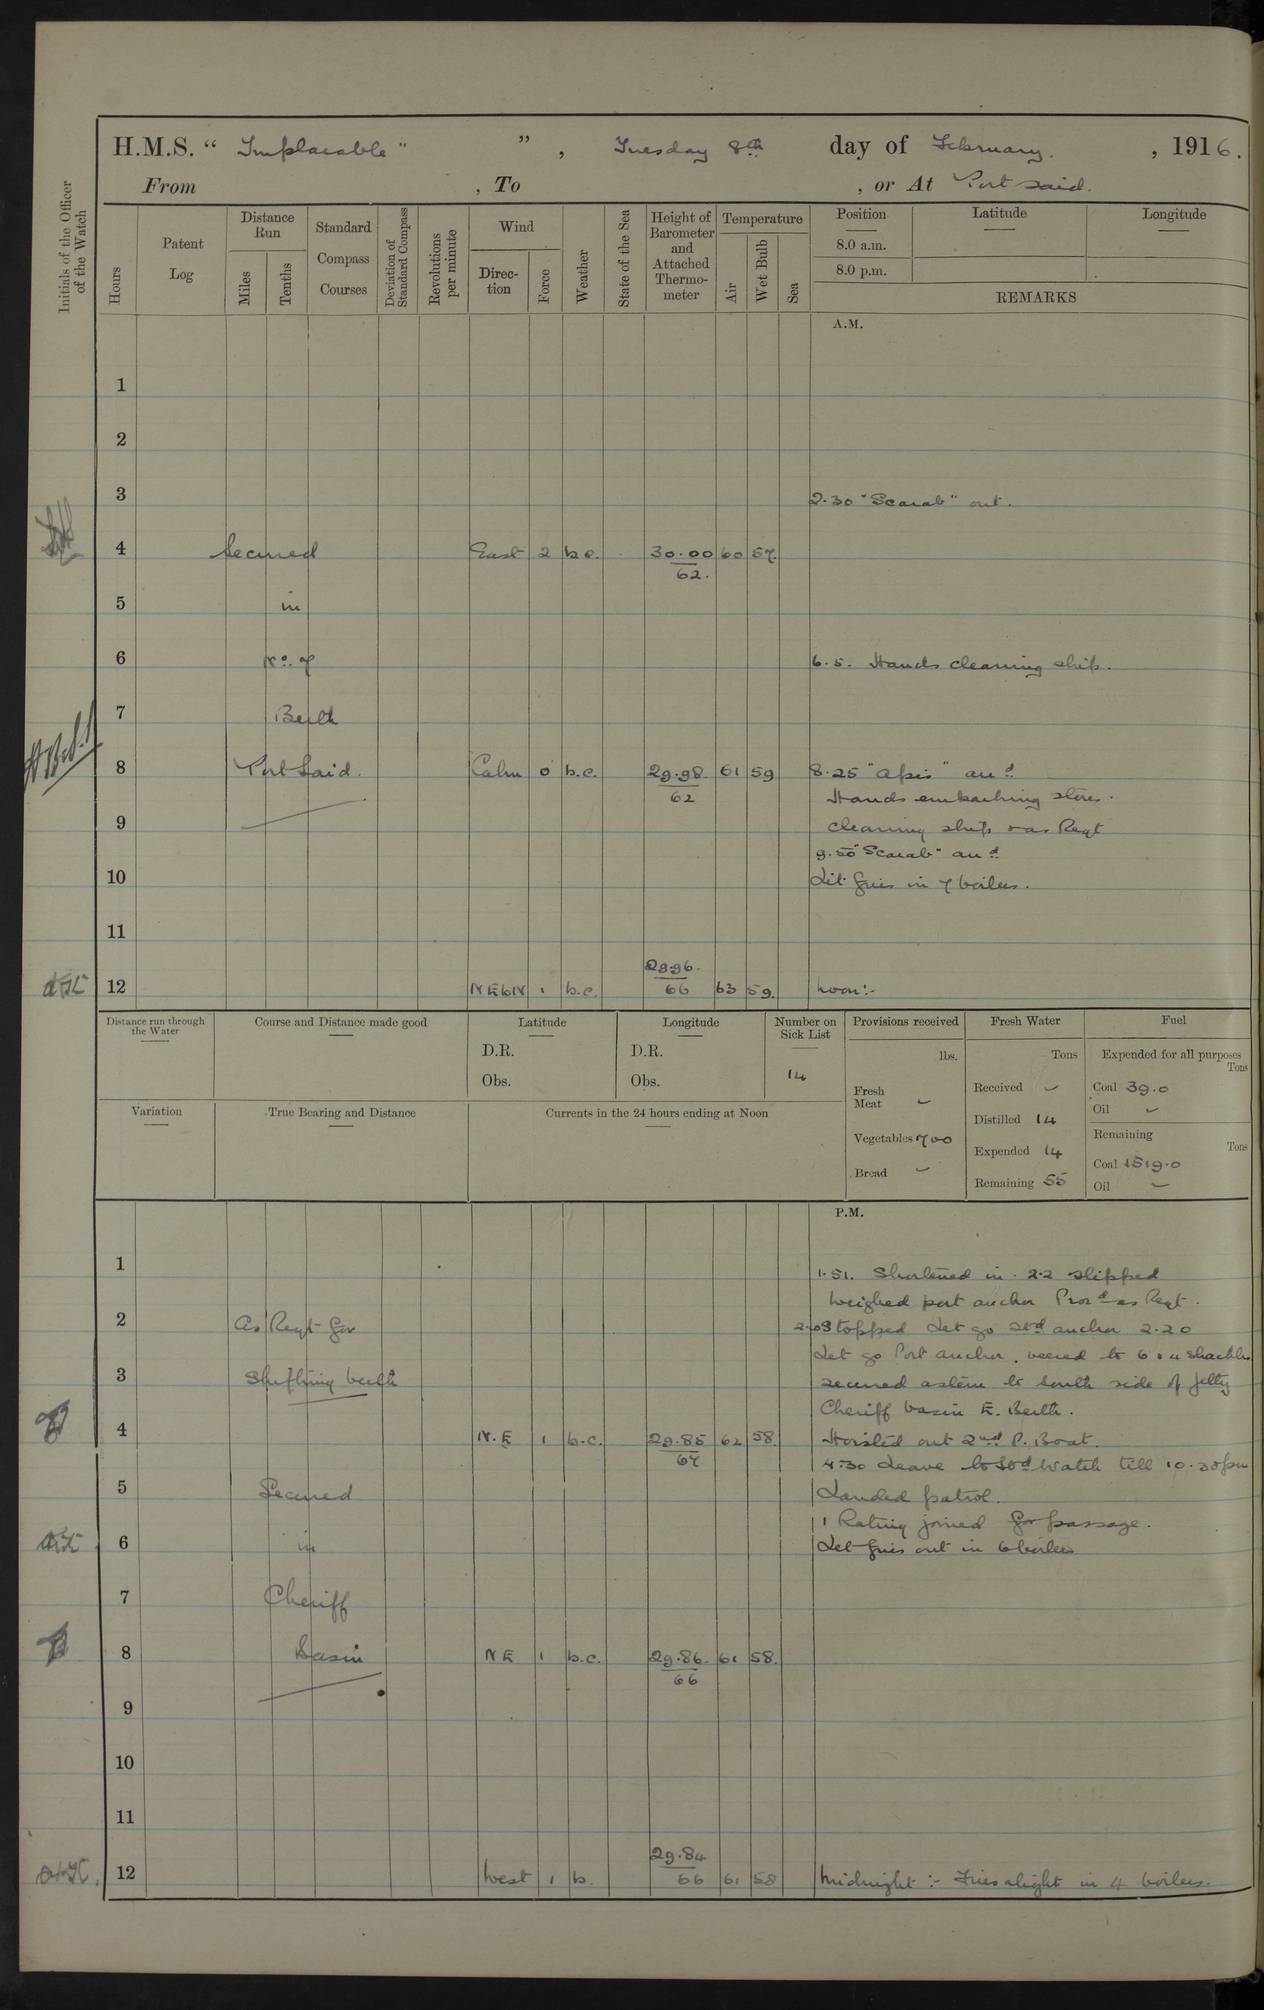 H.M.S. “ Implacable ” ” , Tuesday 8th day of February. , 1916.
From , To , or At Port Said.
Initials of the Officer of the Watch
Hours
Patent Log
Distance Run
Miles
Tenths
Standard Compass Courses
Deviation of Standard Compass
Revolutions per minute
Wind
Direc-tion
Force
Weather
State of the Sea
Height of Barometer and Attached Thermo-meter
Temperature
Air
Wet Bulb
Sea
Position
8.0 a.m.
8.0 p.m.
Latitude
Longitude
REMARKS
A.M.
1
2
3 2.30 "Scarab" out.
4 Secured East 2 b.c. 30.00 60 57.
62.
5 in
6 No. 7 6.5. Hands cleaning ship.
7 Berth
8 Port Said. Calm 0 b.c. 29.98 61 59 8.25 "Apis" arrd
62 Hands embarking stores.
9 cleaning ship & as Reqt
9.50 "Scarab" arrd
10 Lit fires in 7 boilers.
11
29.96.
12 NEbN 1 b.c. 66 63 59. Noon:-
Distance run through the Water
Course and Distance made good
Latitude
D.R.
Obs.
Longitude
D.R.
Obs.
Number on Sick List
14
Variation
True Bearing and Distance
Currents in the 24 hours ending at Noon
Provisions received
lbs.
Fresh Meat -
Vegetables 700
Bread -
Fresh Water
Tons
Received -
Distilled 14
Expended 14
Remaining 55
Fuel
Expended for all purposes
Tons
Coal 39.0
Oil -
Remaining
Tons
Coal 1519.0
Oil -
P.M.
1 1.51. Shortened in. 2.2 slipped
weighed port anchor Procd as Reqt.
2 As Reqt for 2.03 Stopped Let go Stbd anchor 2.20
Let go Port anchor, veered to 6 & 4 shackles
3 Shifting berth secured astern to South side of jetty
Cheriff basin E. Berth.
4 N.E 1 b.c. 29.85 62 58. Hoisted out 2nd P. Boat.
67 4.30 Leave to Stbd Watch till 10.30 pm
5 Secured Landed patrol.
1 Rating joined for passage.
6 in Let fires out in 6 boilers
7 Cheriff
8 basin NE 1 b.c. 29.86. 61 58.
66
9
10
11
29.84
12 West 1 b. 66 61 58 Midnight :- Fires alight in 4 boilers.